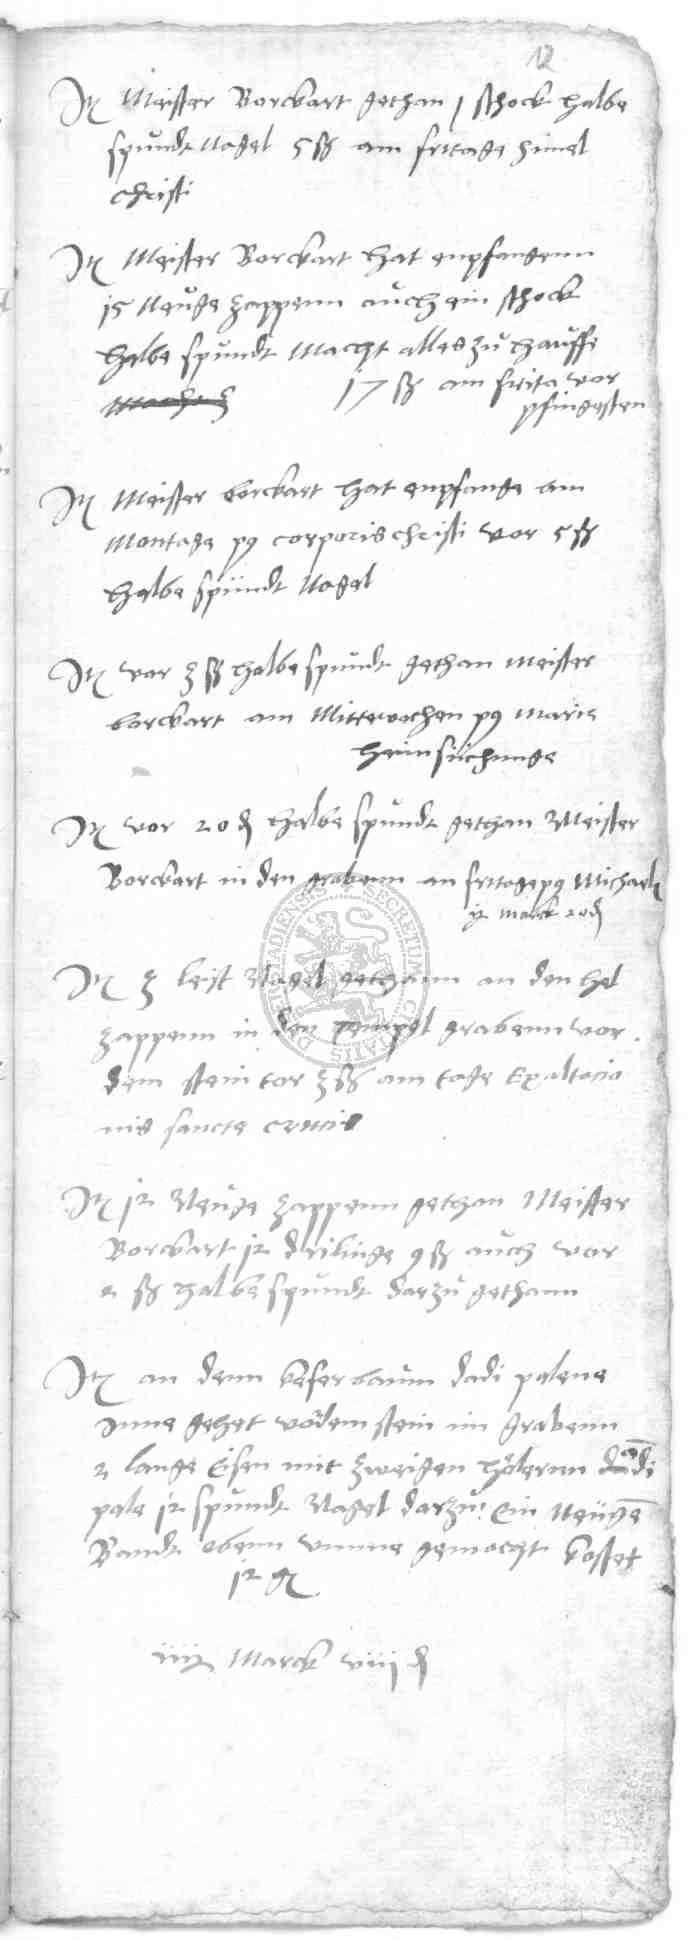 12
It Meister Borckart gethan 1 schock halbe
spundt Nagel 5 ß am fritage himel
christi
It Meister Borckart hat enpfangenn
15 Neuge zappenn auch ein schock
halbe spundt Macht alles zu hauffe
17 ß am frita vor
pfingesten
It Meister borckart hat enpfange am
Montage p9 corporis christi vor 5 ß
halbe spundt Nagel
It vor 3 ß halbe spundt gethan Meister
borckart am Mittwochen p9 Marie
heimsuchunge
It vor 20 d halbe spundt gethan Meister
Borckart in den grabenn an fritage p9 Michael
Marck 20 d
It 3 leist Nagel gethann an den hel
zappenn in den tempel grabenn vor
dem stein tor 3 ß am tage Exaltacio
nis sancte crucis
It 12 Neuge zappenn gethan Meister
Borckart 12 drilinge 9 ß auch vor
2 ß halbe spundt darzu gethann
It an denn baum dadi palene
Inne gehet vor dem stein im grabenn
2 lange Eisen mit zweigen dadi
pale 12 spundt Nagel darzu Ein Neuge
Bandt obenn umme gemacht kostet
12 g
Marck viii d
SECRETUM CIVITATIS